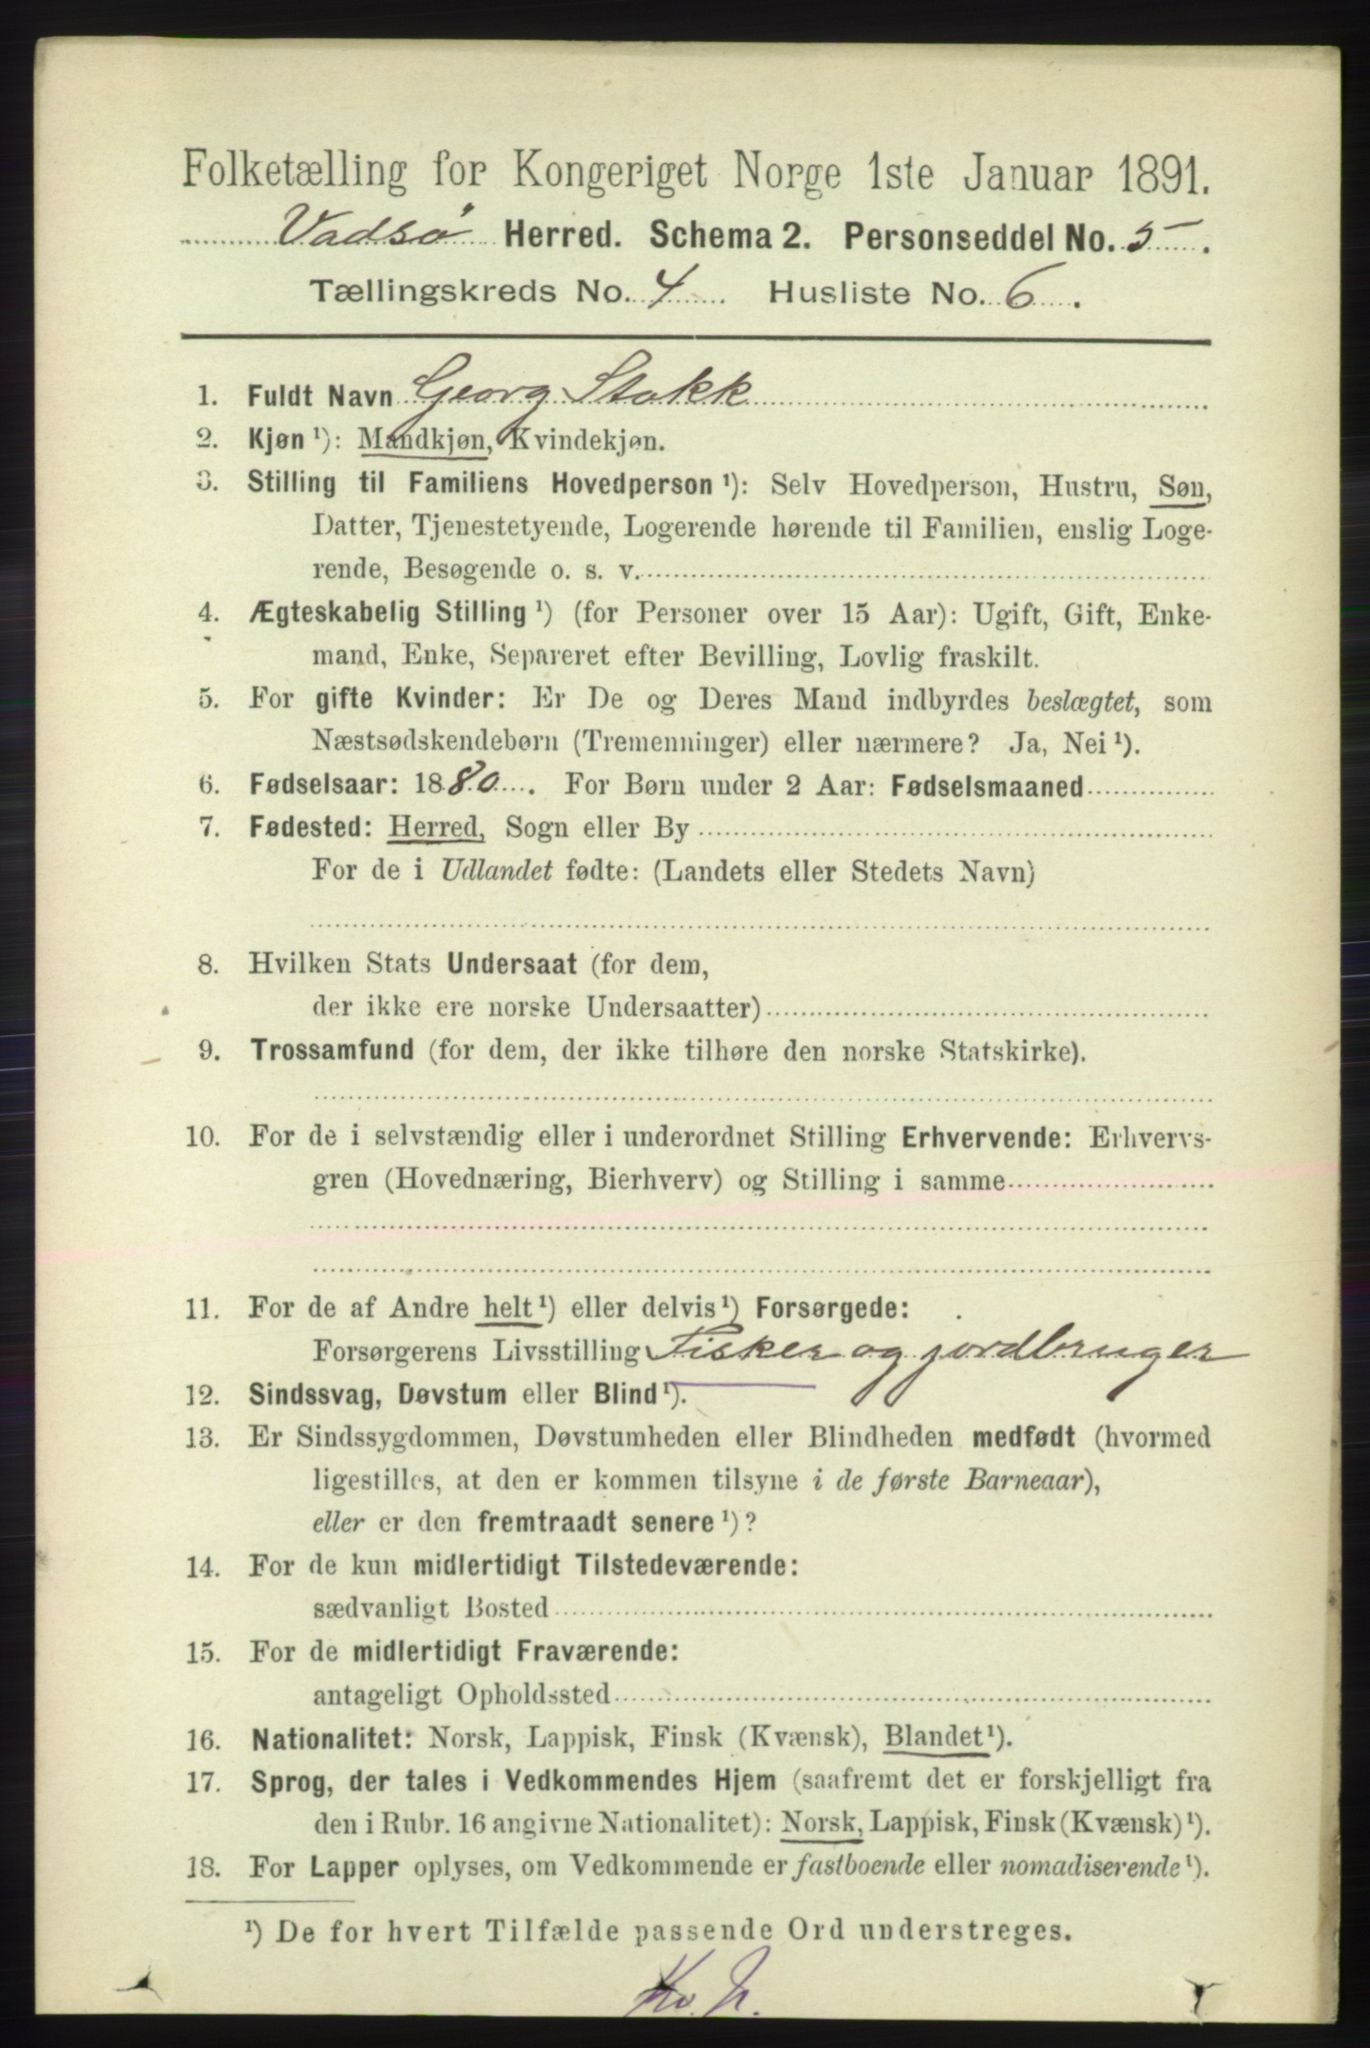 Folketælling for Kongeriget Norge 1ste Januar 1891.
Vadsø Herred. Schema 2. Personseddel No. 5.
Tællingskreds No. 4 Husliste No. 6.
1. Fuldt Navn Georg Stokk
2. Kjøn ¹): Mandkjøn, Kvindekjøn.
3. Stilling til Familiens Hovedperson ¹): Selv Hovedperson, Hustru, Søn,
Datter, Tjenestetyende, Logerende hørende til Familien, enslig Loge-
rende, Besøgende o. s. v.
4. Ægteskabelig Stilling ¹) (for Personer over 15 Aar): Ugift, Gift, Enke-
mand, Enke, Separeret efter Bevilling, Lovlig fraskilt.
5. For gifte Kvinder: Er De og Deres Mand indbyrdes beslægtet, som
Næstsødskendebørn (Tremenninger) eller nærmere? Ja, Nei ¹).
6. Fødselsaar: 1880. For Børn under 2 Aar: Fødselsmaaned
7. Fødested: Herred, Sogn eller By
For de i Udlandet fødte: (Landets eller Stedets Navn)
8. Hvilken Stats Undersaat (for dem,
der ikke ere norske Undersaatter)
9. Trossamfund (for dem, der ikke tilhøre den norske Statskirke).
10. For de i selvstændig eller i underordnet Stilling Erhvervende: Erhvervs-
gren (Hovednæring, Bierhverv) og Stilling i samme
11. For de af Andre helt ¹) eller delvis ¹) Forsørgede:
Forsørgerens Livsstilling Fisker og jordbruger
12. Sindssvag, Døvstum eller Blind ¹).
13. Er Sindssygdommen, Døvstumheden eller Blindheden medfødt (hvormed
ligestilles, at den er kommen tilsyne i de første Barneaar),
eller er den fremtraadt senere ¹)?
14. For de kun midlertidigt Tilstedeværende:
sædvanligt Bosted
15. For de midlertidigt Fraværende:
antageligt Opholdssted
16. Nationalitet: Norsk, Lappisk, Finsk (Kvænsk), Blandet ¹).
17. Sprog, der tales i Vedkommendes Hjem (saafremt det er forskjelligt fra
den i Rubr. 16 angivne Nationalitet): Norsk, Lappisk, Finsk (Kvænsk) ¹).
18. For Lapper oplyses, om Vedkommende er fastboende eller nomadiserende ¹).
¹) De for hvert Tilfælde passende Ord understreges.
Kv. N.